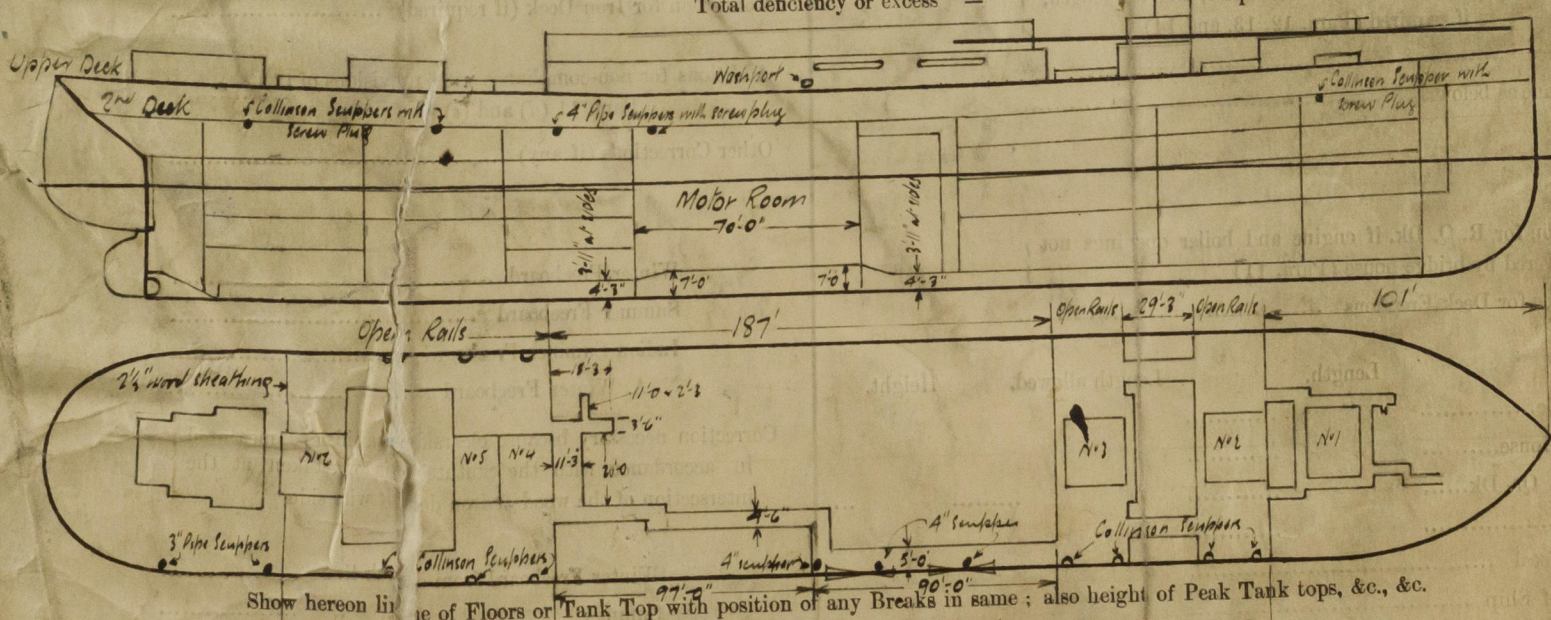 Total deficiency or excess —
Upper Deck
2nd Deck
Collinson Scuppers with
Screw Plug
4" Pipe Scuppers with screw plug
Washport
Collinson Scupper with
Screw Plug
Motor Room
70'-0"
3'-11" at sides
3'-11" at sides
4'-3"
7'-0"
7'-0
4'-3"
Open Rails
187'
Open Rails
29'-3"
Open Rails
101'
2½" wood sheathing
18'-3
11'-0 × 2'-3
3'-6"
No 6
No 5
No 4
11'-3
20'-0
No 3
No 2
No 1
4'-6"
4" scupper
Collinson Scuppers
3" Pipe Scuppers
Collinson Scuppers
4" scupper
5'-0"
97'-0"
90'-0"
Show hereon line of Floors or Tank Top with position of any Breaks in same ; also height of Peak Tank tops, &c., &c.